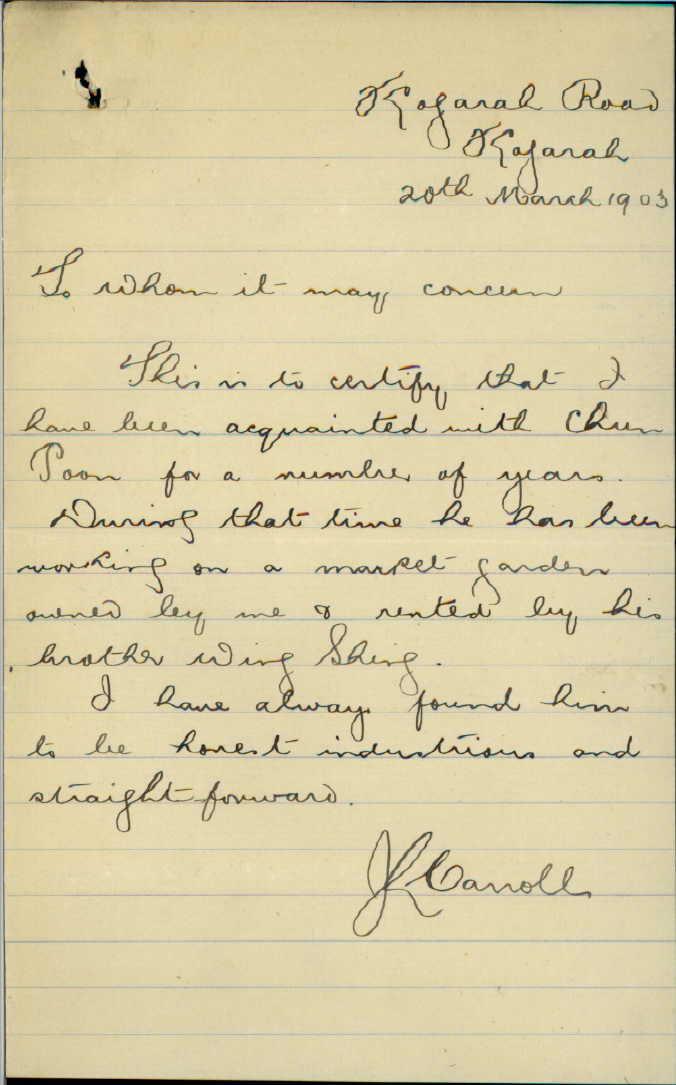 Kogarah Road
Kogarah
20th March 1903
To whom it may concern
This is to certify that I
have been acquainted with Chun
Poon for a number of years.
During that time he has been
working on a market garden
owned by me & rented by his
brother Wing Shing.
I have always found him
to be honest industrious and
straight forward.
Carroll